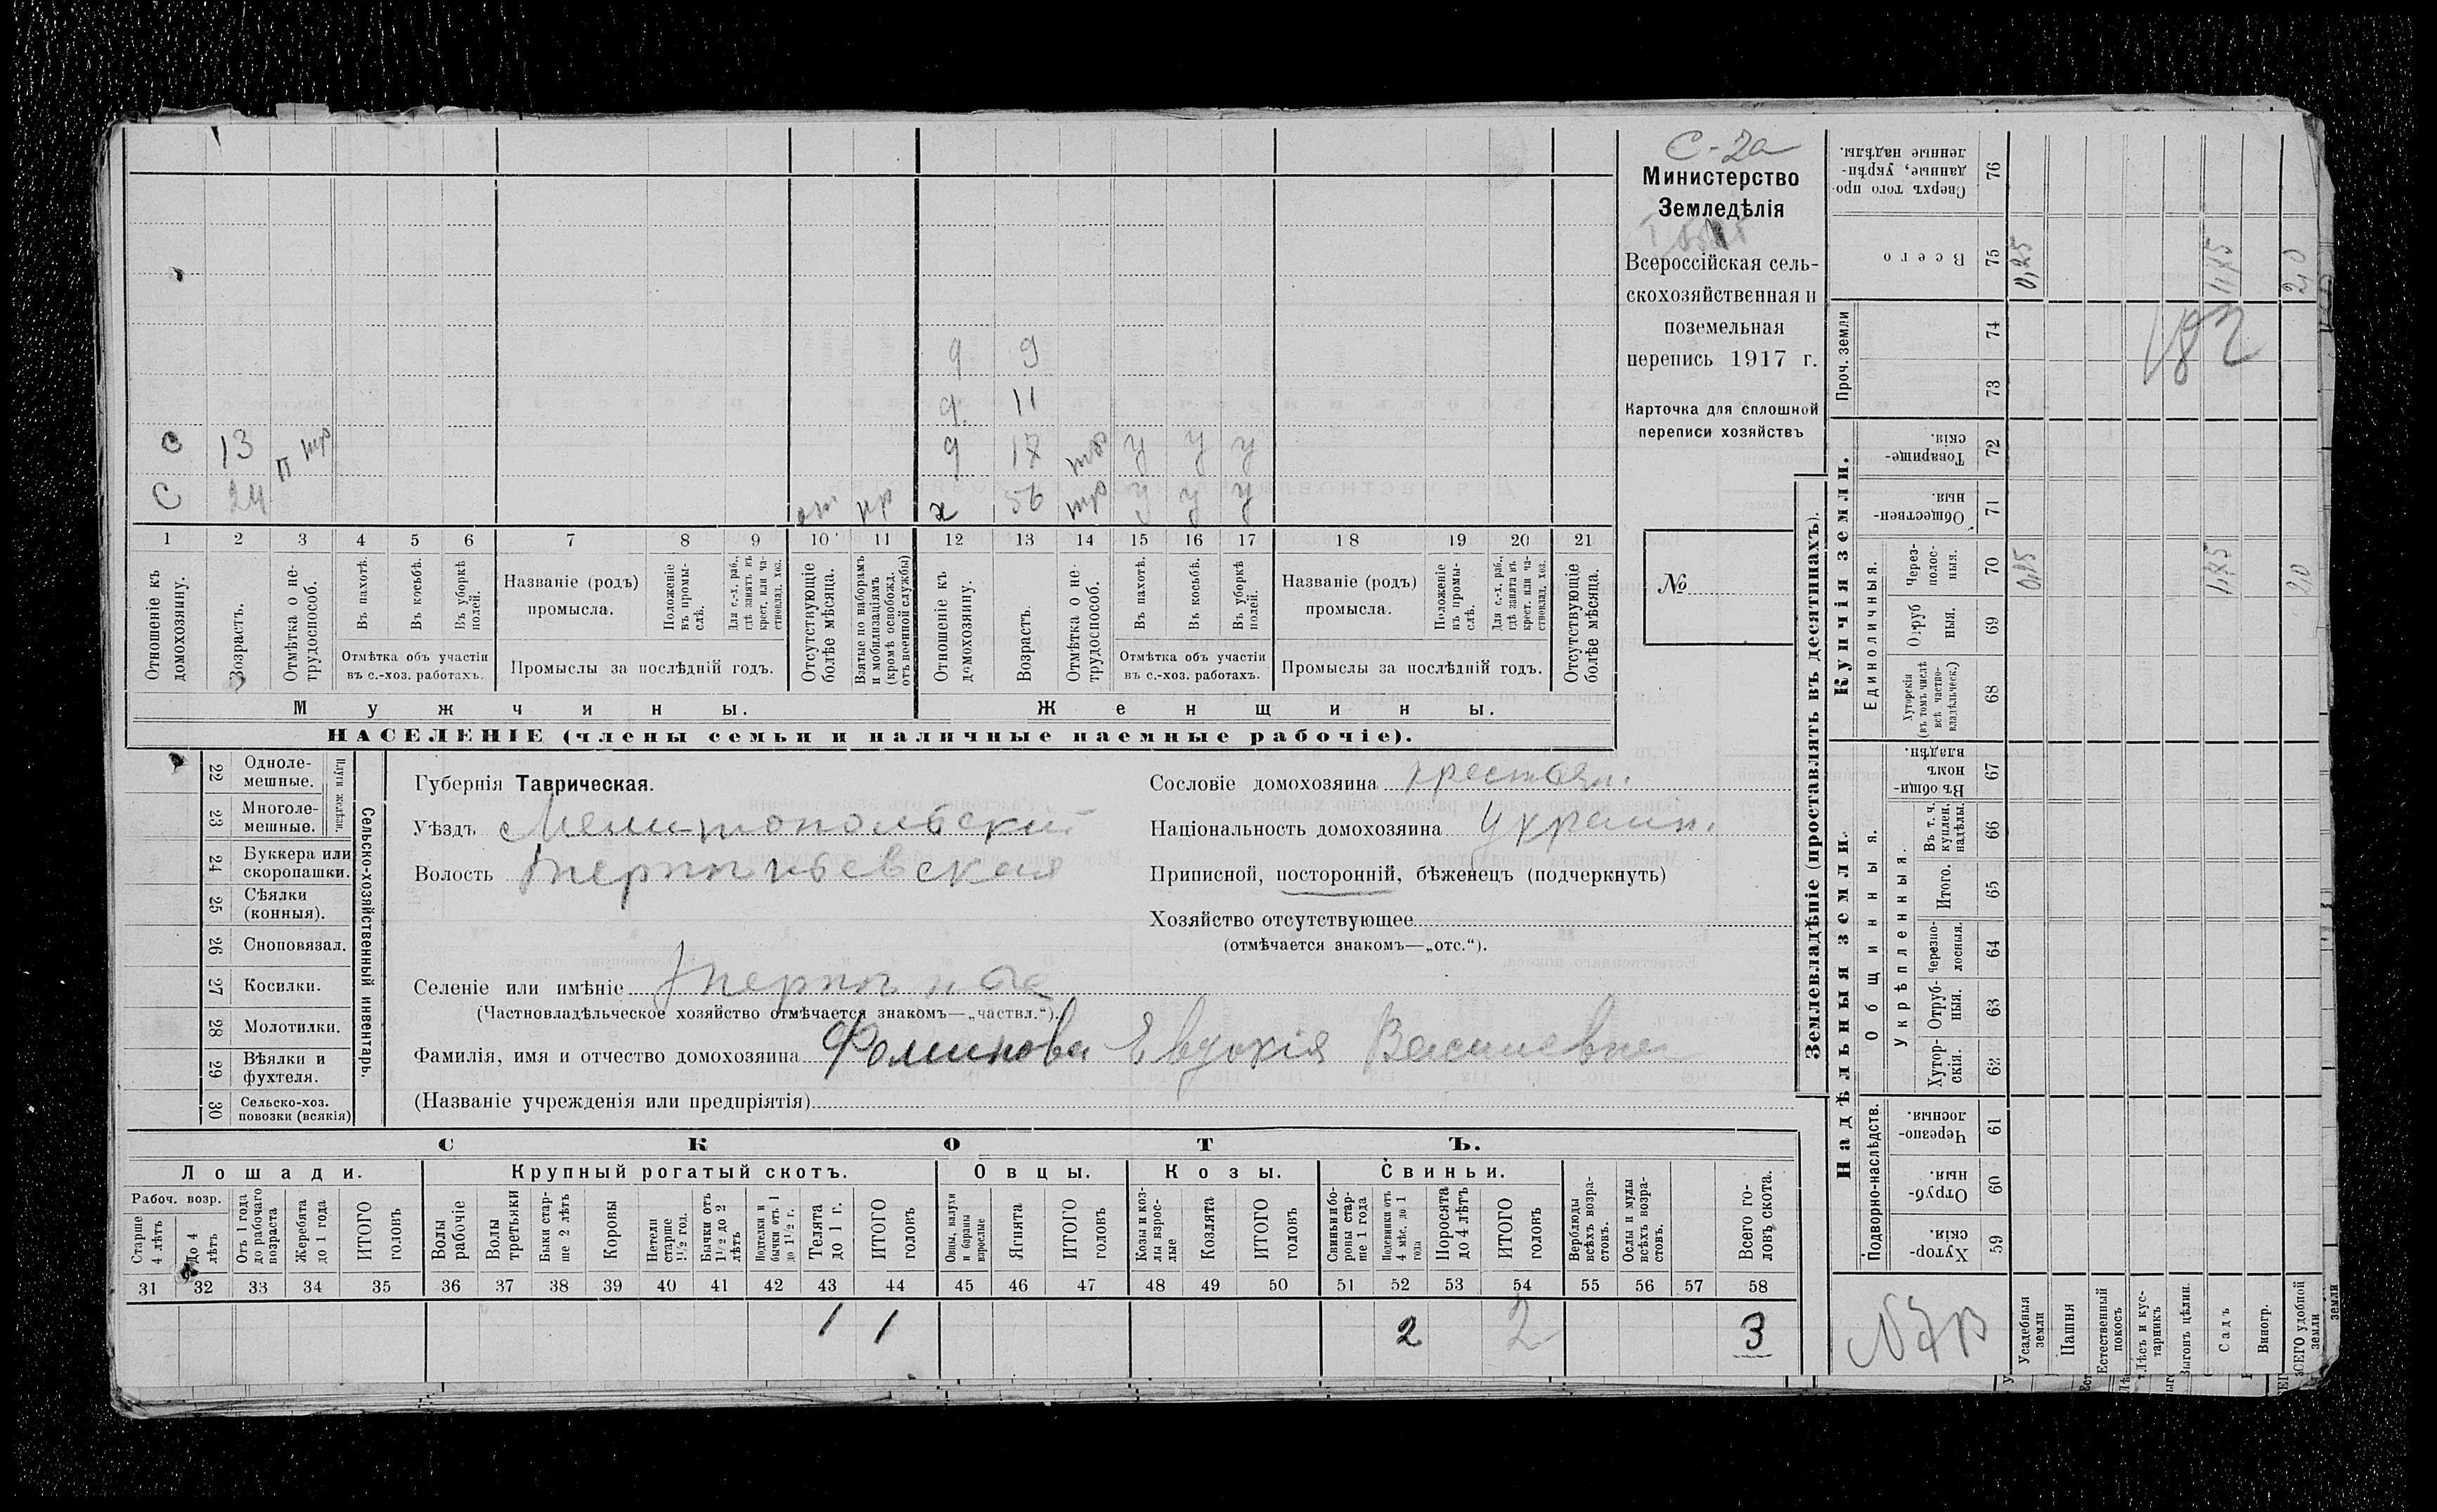 С-2а
Министерство
Земледѣлія
Всероссійская сель-
скохозяйственная и
поземельная
перепись 1917 г.
Карточка для сплошной
переписи хозяйствъ
№
д 9
д. 11
С 13 п тр д 17 тр у у у
С 24 от пр х 56 тр у у у
1 2 3 4 5 6 7 8 9 10 11 12 13 14 15 16 17 18 19 20 21
Отношеніе къ домохозяину.
Возрастъ.
Отмѣтка о не- трудоспособ.
Въ пахотѣ.
Въ косьбѣ.
Въ уборкѣ полей.
Отмѣтка объ участіи
въ с.-хоз. работахъ.
Названіе (родъ)
промысла.
Положеніе въ промы- слѣ.
Для с.-х. раб., гдѣ занятъ въ крест. или ча- стновлад. хоз.
Промыслы за послѣдній годъ.
Отсутствующіе болѣе мѣсяца.
Взятые по наборамъ и мобилизаціямъ (кромѣ освобожд. отъ военной службы)
Отношеніе къ домохозяину.
Возрастъ.
Отмѣтка о не- трудоспособ.
Въ пахотѣ.
Въ косьбѣ.
Въ уборкѣ полей.
Отмѣтка объ участіи
въ с.-хоз. работахъ.
Названіе (родъ)
промысла.
Положеніе въ промы- слѣ.
Для с.-х. раб., гдѣ занята въ крест. или ча- стновлад. хоз.
Промыслы за послѣдній годъ.
Отсутствующіе болѣе мѣсяца.
Мужчины.
Женщины.
НАСЕЛЕНІЕ (члены семьи и наличные наемные рабочіе).
22 Одноле-
мешные.
23 Многоле-
мешные.
Плуги желѣзн.
24 Буккера или
скоропашки.
25 Сѣялки
(конныя).
26 Сноповязал.
27 Косилки.
28 Молотилки.
29 Вѣялки и
фухтеля.
30 Сельско-хоз.
повозки (всякія)
Сельско-хозяйственный инвентарь.
Губернія Таврическая.
Уѣздъ Мелитопольскій
Волость Терпеньевская
Селеніе или имѣніе Терпенье
(Частновладѣльческое хозяйство отмѣчается знакомъ—„частвл.“).
Фамилія, имя и отчество домохозяина Фоминова Евдокія Васильевна
(Названіе учрежденія или предпріятія)
Сословіе домохозяина крестьян.
Національность домохозяина Украин.
Приписной, посторонній, бѣженецъ (подчеркнуть)
Хозяйство отсутствующее
(отмѣчается знакомъ—„отс.“).
СКОТЪ.
Лошади.
Крупный рогатый скотъ.
Овцы.
Козы.
Свиньи.
Рабоч. возр.
Старше 4 лѣтъ
до 4 лѣтъ
Отъ 1 года до рабочаго возраста
Жеребята до 1 года
ИТОГО головъ
Волы рабочіе
Волы третьяки
Быки стар- ше 2 лѣтъ
Коровы
Нетели старше 1½ год.
Бычки отъ 1½ до 2 лѣтъ
Подтелки и бычки отъ 1 до 1½ г.
Телята до 1 г.
ИТОГО головъ
Овцы, валухи и бараны взрослые
Ягнята
ИТОГО головъ
Козы и коз- лы взрос- лые
Козлята
ИТОГО головъ
Свиньи и бо- ровы стар- ше 1 года
Подсвинки отъ 4 мѣс. до 1 года
Поросята до 4 лѣтъ
ИТОГО головъ
Верблюды всѣхъ возра- стовъ.
Ослы и мулы всѣхъ возра- стовъ.
Всего го- ловъ скота.
31 32 33 34 35 36 37 38 39 40 41 42 43 44 45 46 47 48 49 50 51 52 53 54 55 56 57 58
1 1 2 2 3
Землевладѣніе (проставлять въ десятинахъ).
Надѣльныя земли.
Купчія земли.
Проч. земли
Подворно-наслѣдств.
Общинныя.
Укрѣпленныя.
Единоличныя.
Хутор- скія. 59
Отруб- ныя. 60
Черезпо- лосныя. 61
Хутор- скія. 62
Отруб- ныя. 63
Черезпо- лосныя. 64
Итого. 65
Въ т. ч. куплен. надѣлы. 66
Въ общи- номъ владѣн. 67
Хуторскія (въ томъ числѣ всѣ частно- владѣльческ.) 68
Отруб ныя. 69
Через- полос- ныя. 70
Обществен- ныя. 71
Товарище- скія. 72
73
74
Всего 75
Сверхъ того про- данные, укрѣп- ленные надѣлы. 76
Усадебныя земли 0,25 0,25
Пашня
Естественный покосъ
Лѣсъ и кус- тарникъ
Выгонъ цѣлин.
Садъ 1,75 1,75
Виногр.
ВСЕГО удобной земли 2,0 2,0
182